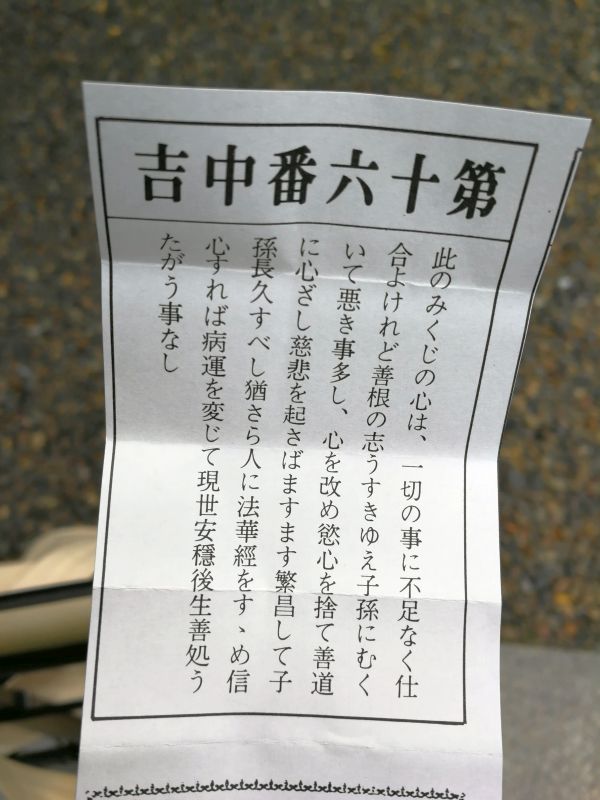 第十六番中吉
此のみくじの心は、一切の事に不足なく仕
合よけれど善根の志うすきゆえ子孫にむく
いて悪き事多し、心を改め慾心を捨て善道
に心ざし慈悲を起さばますます繁昌して子
孫長久すべし猶さら人に法華經をすゝめ信
心すれば病運を変じて現世安穏後生善処う
たがう事なし